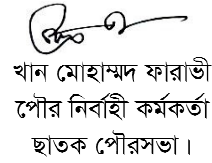 খান মোহাম্মদ ফারাভী
পৌর নির্বাহী কর্মকর্তা
ছাতক পৌরসভা।